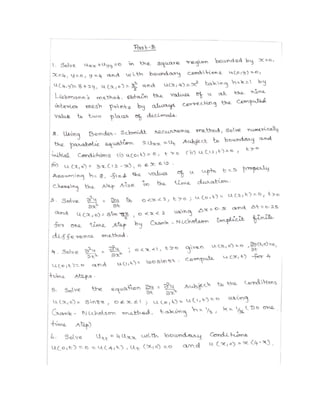 Part-B
1. Solve uxx+uyy=0 in the square region bounded by x=0,
x=4, y=0, y=4 and with boundary conditions u(0,y)=0,
u(4,y)=8+2y, u(x,0)=x²/2 and u(x,4)=x² taking h=k=1 by
Liebmann's method, obtain the values of u at the nine
interior mesh points by always correcting the computed
value to two places of decimals.
2. Using Bender-Schmidt recurrence method, solve numerically
the parabolic equation uxx=ut subject to boundary and
initial conditions (i) u(0,t)=0, t>0 (ii) u(12,t)=0, t>0
(iii) u(x,0)= x(12-x), 0≤x≤12.
Assuming h=2, find the values of u upto t=5 properly
choosing the step size in the time duration.
3. Solve ∂²u/∂x² = ∂u/∂t in 0<x<5, t>0; u(0,t)=0, t>0
and u(x,0)=sin 0<x<5 using Δx= and Δt=
for one time step by Crank-Nicholson Implicit finite
difference method.
4. Solve ∂²u/∂t² = ∂²u/∂x², 0<x<1, t>0 given u(x,0)=0, ∂u/∂t(x,0)=0,
u(0,t)=0 and u(1,t)=100sinπt. Compute u(x,t) for 4
time steps.
5. Solve the equation ∂u/∂t = ∂²u/∂x² subject to the conditions
u(x,0)= sinπx, 0≤x≤1; u(0,t)=u(1,t)=0 using
Crank-Nicholson method, taking h=1/3, k=1/36 (Do one
time step)
6. Solve utt=4uxx with boundary conditions
u(0,t)=0=u(4,t), ut(x,0)=0 and u(x,0)=x(4-x).